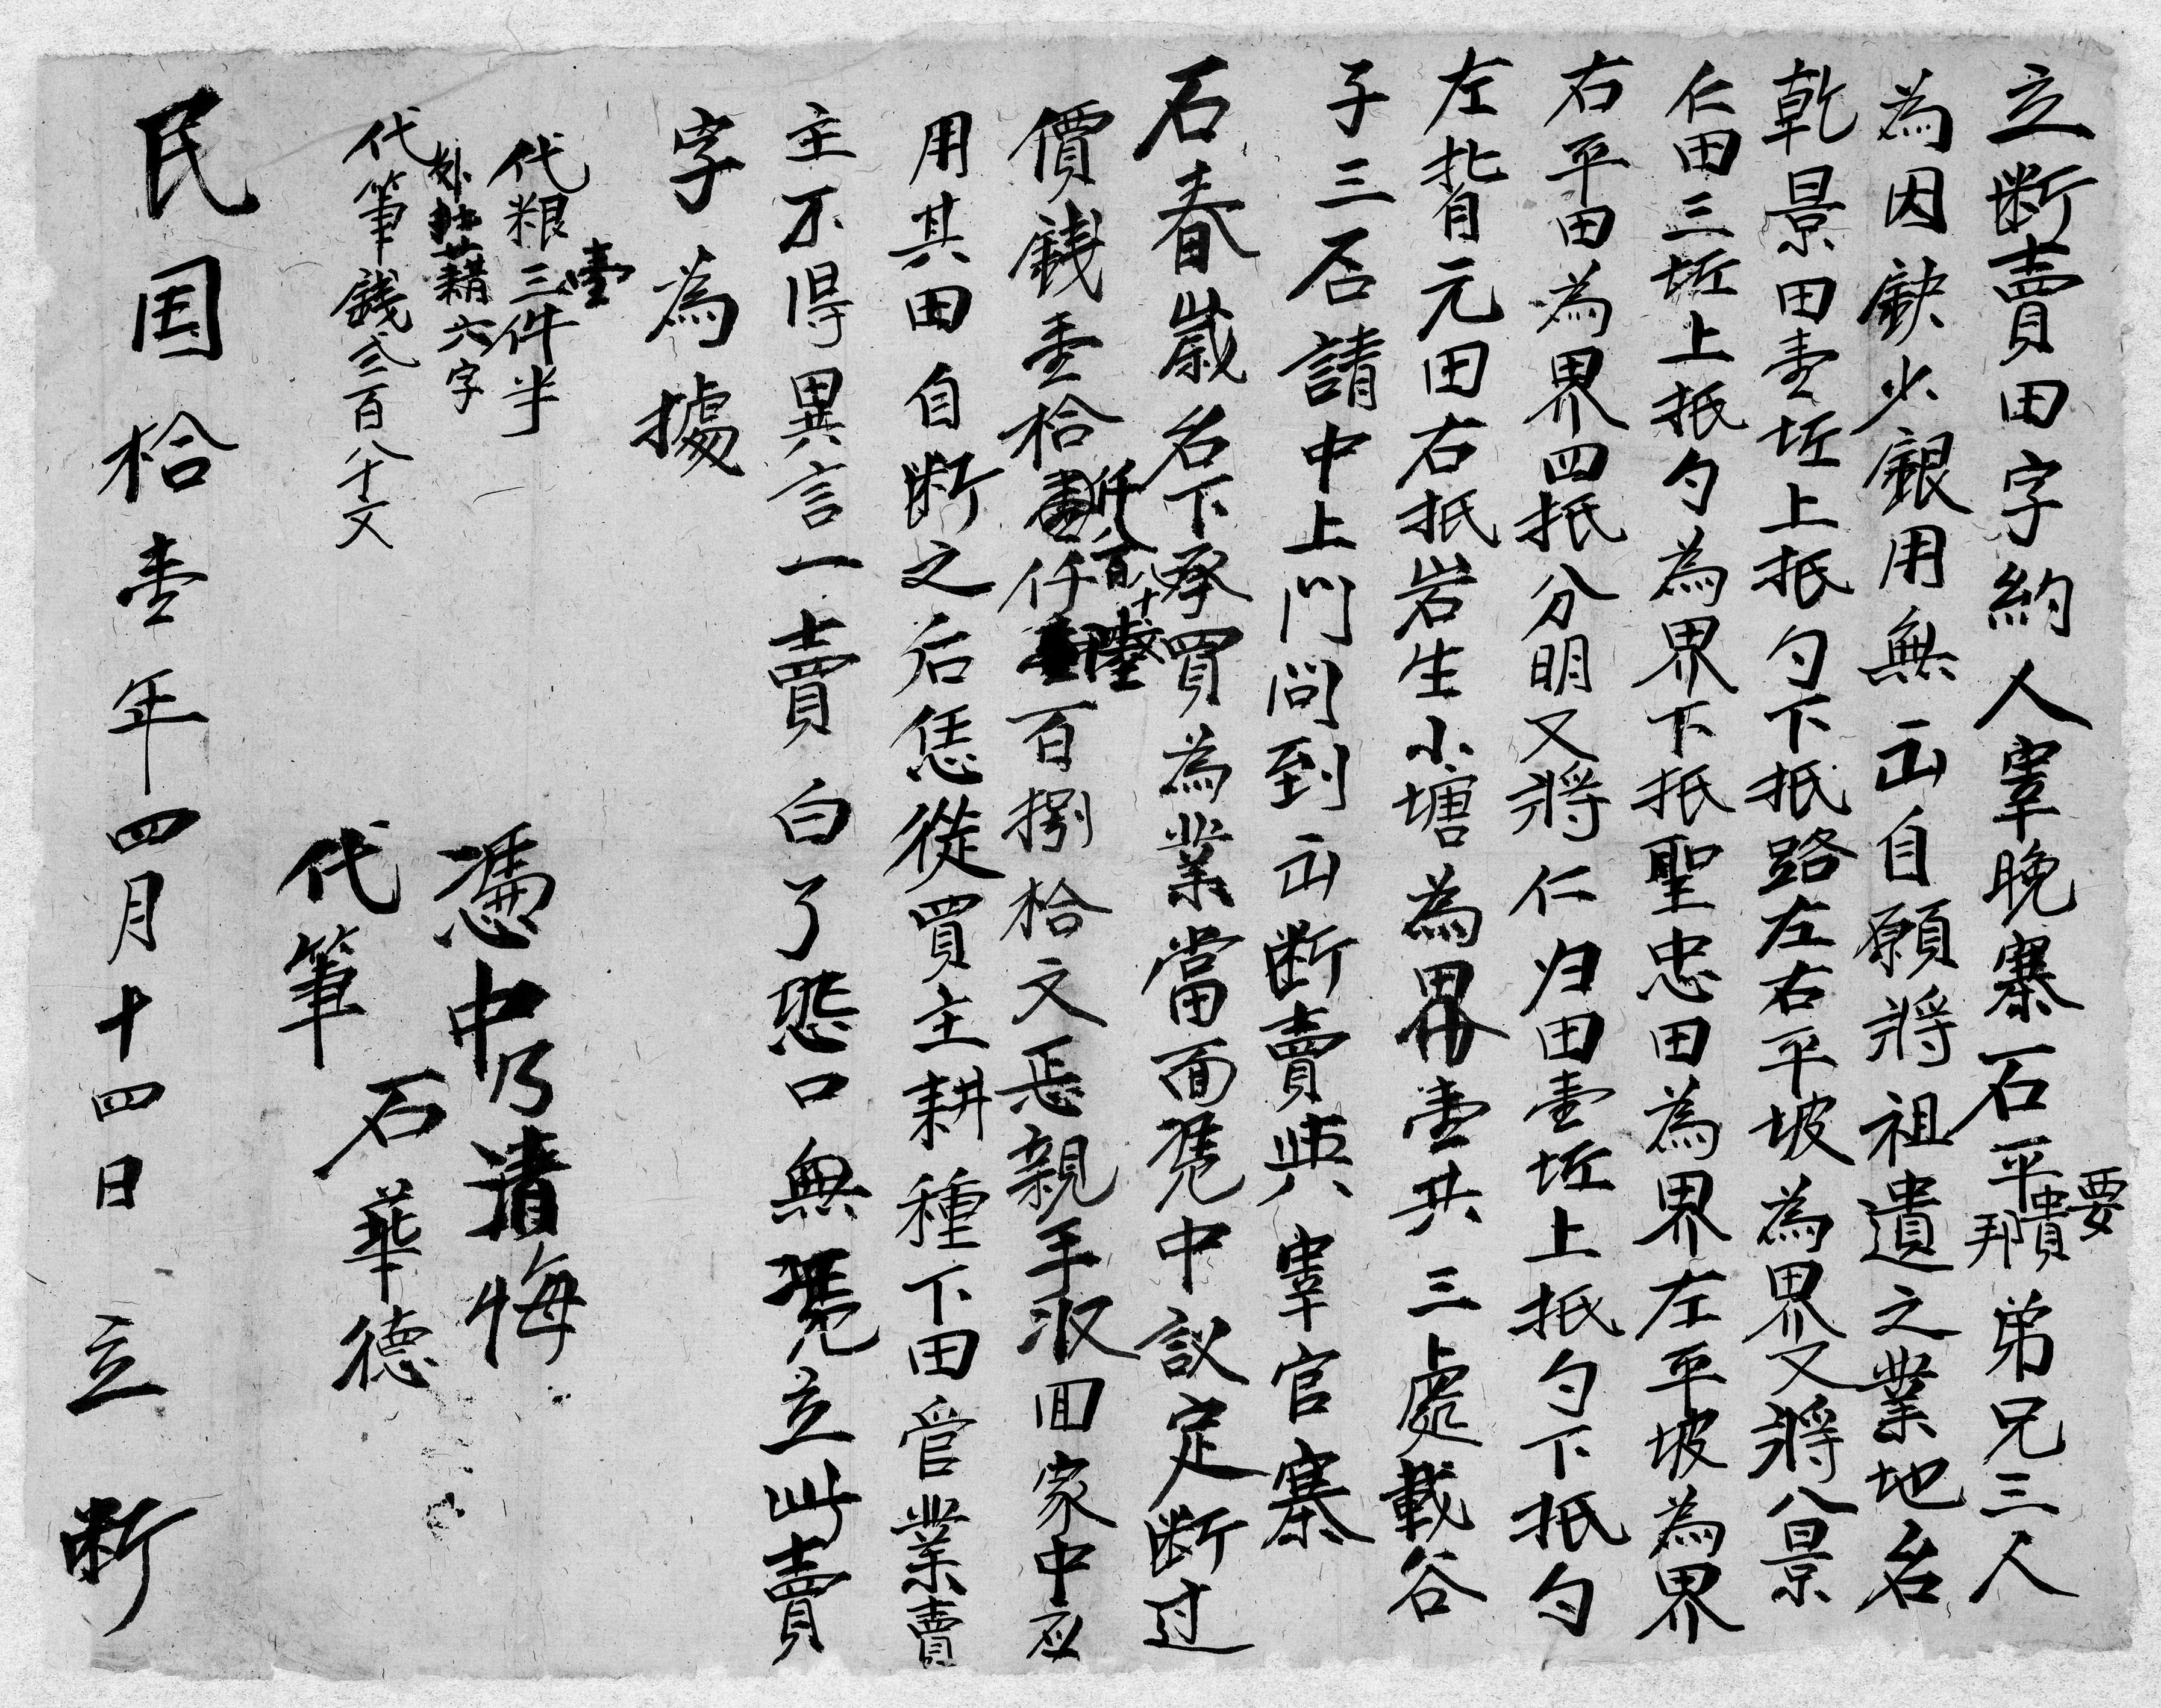 立断賣田字約人宰晚寨石平貴邦要弟兄三人
為因缺少銀用無出自願將祖遺之業地名
乾景田壹坵上抵勺下抵路左右平坡為界又將八景
仁田三坵上抵勺為界下抵聖忠田為界左平坡為界
右平田為界四抵分明又將仁归田壹坵上抵勺下抵勺
左背元田右抵岩生小塘為界壹共三處載谷
子三石請中上門問到出断賣與宰官寨
石春歲名下承買為業當面凴中議定断过
價錢壹拾仟百捌拾文恁親手收回家中应
用其田自断之后恁從買主耕種下田管業賣
主不得異言一賣白了恐口無凴立此賣
字為據
代粮壹三件半
外六字
代筆錢叁百八十文
憑中乃清悔
代筆 石華德
民国拾壹年四月十四日立断